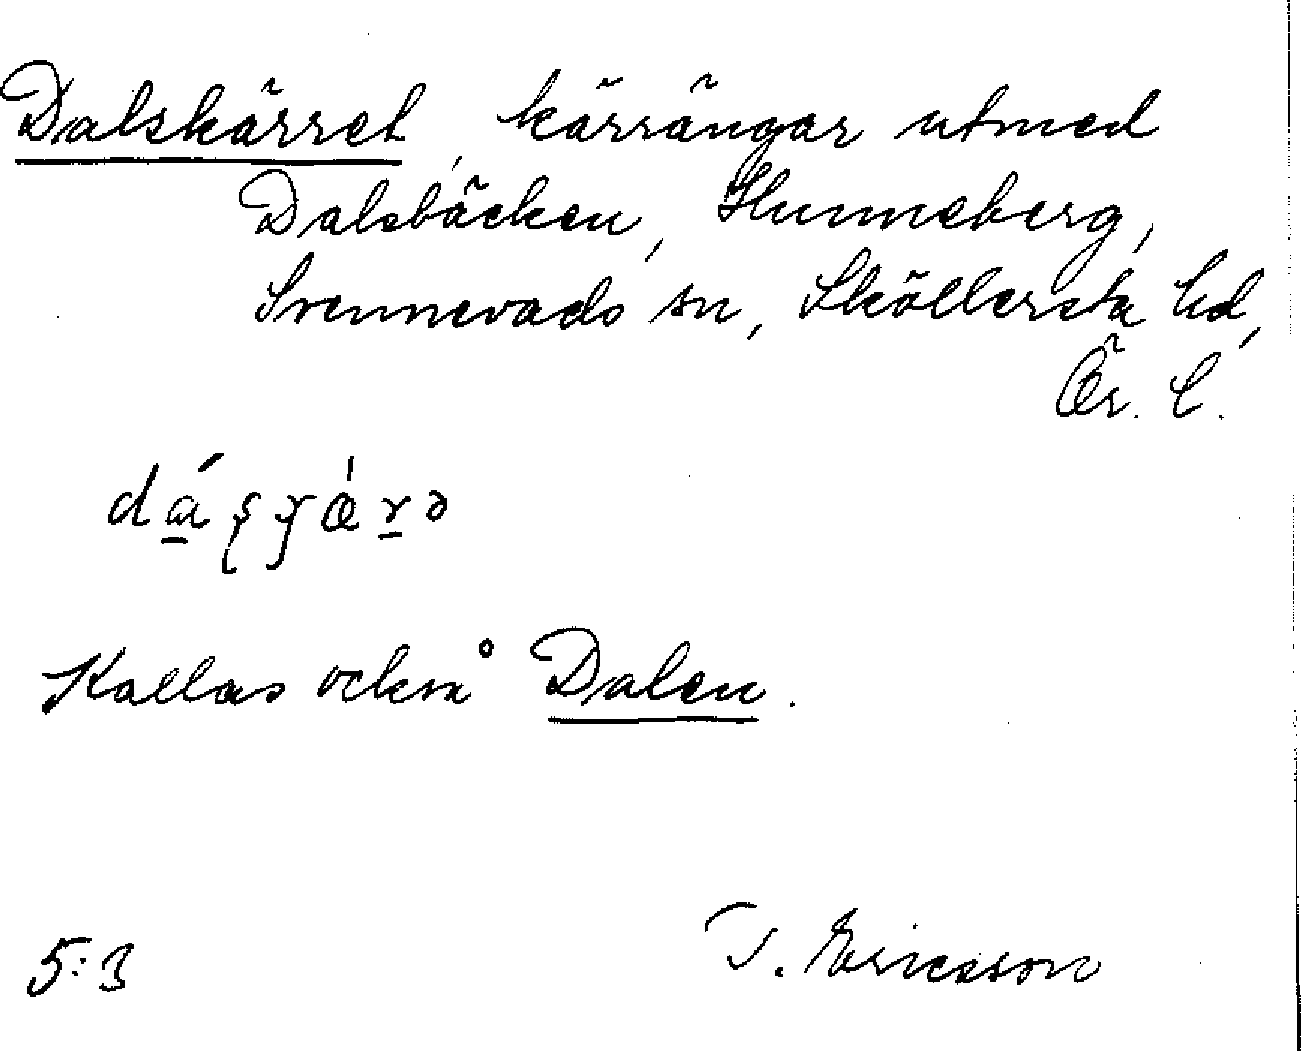 Dalskärret, kärrängar utmed
Dalsbäcken, Hunneberg,
Svennevads sn, Sköllersta hd,
Ör. l.
Kallas också Dalen.
5:3
T. Ericsson